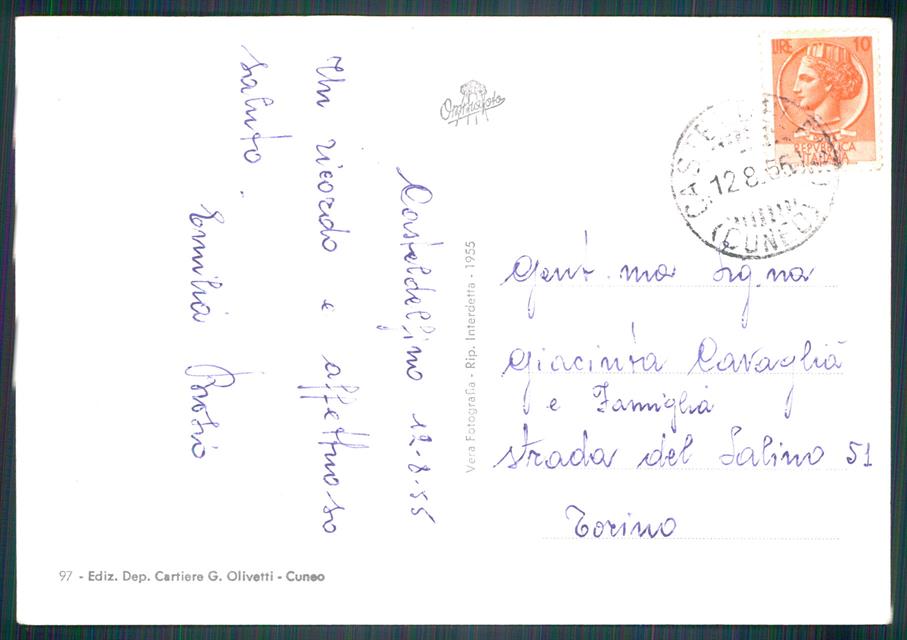 Casteldelfino 12-8-55
Un ricordo e affettuoso
saluto.
Emilia
Gent.ma Sig.na
Giacinta Cavaglià
e Famiglia
strada del Salino 51
Torino
LIRE 10
REPVBBLICA
ITALIANA
12.8.55
(CUNEO)
Vera Fotografia - Rip. Interdetta - 1955
97 - Ediz. Dep. Cartiere G. Olivetti - Cuneo